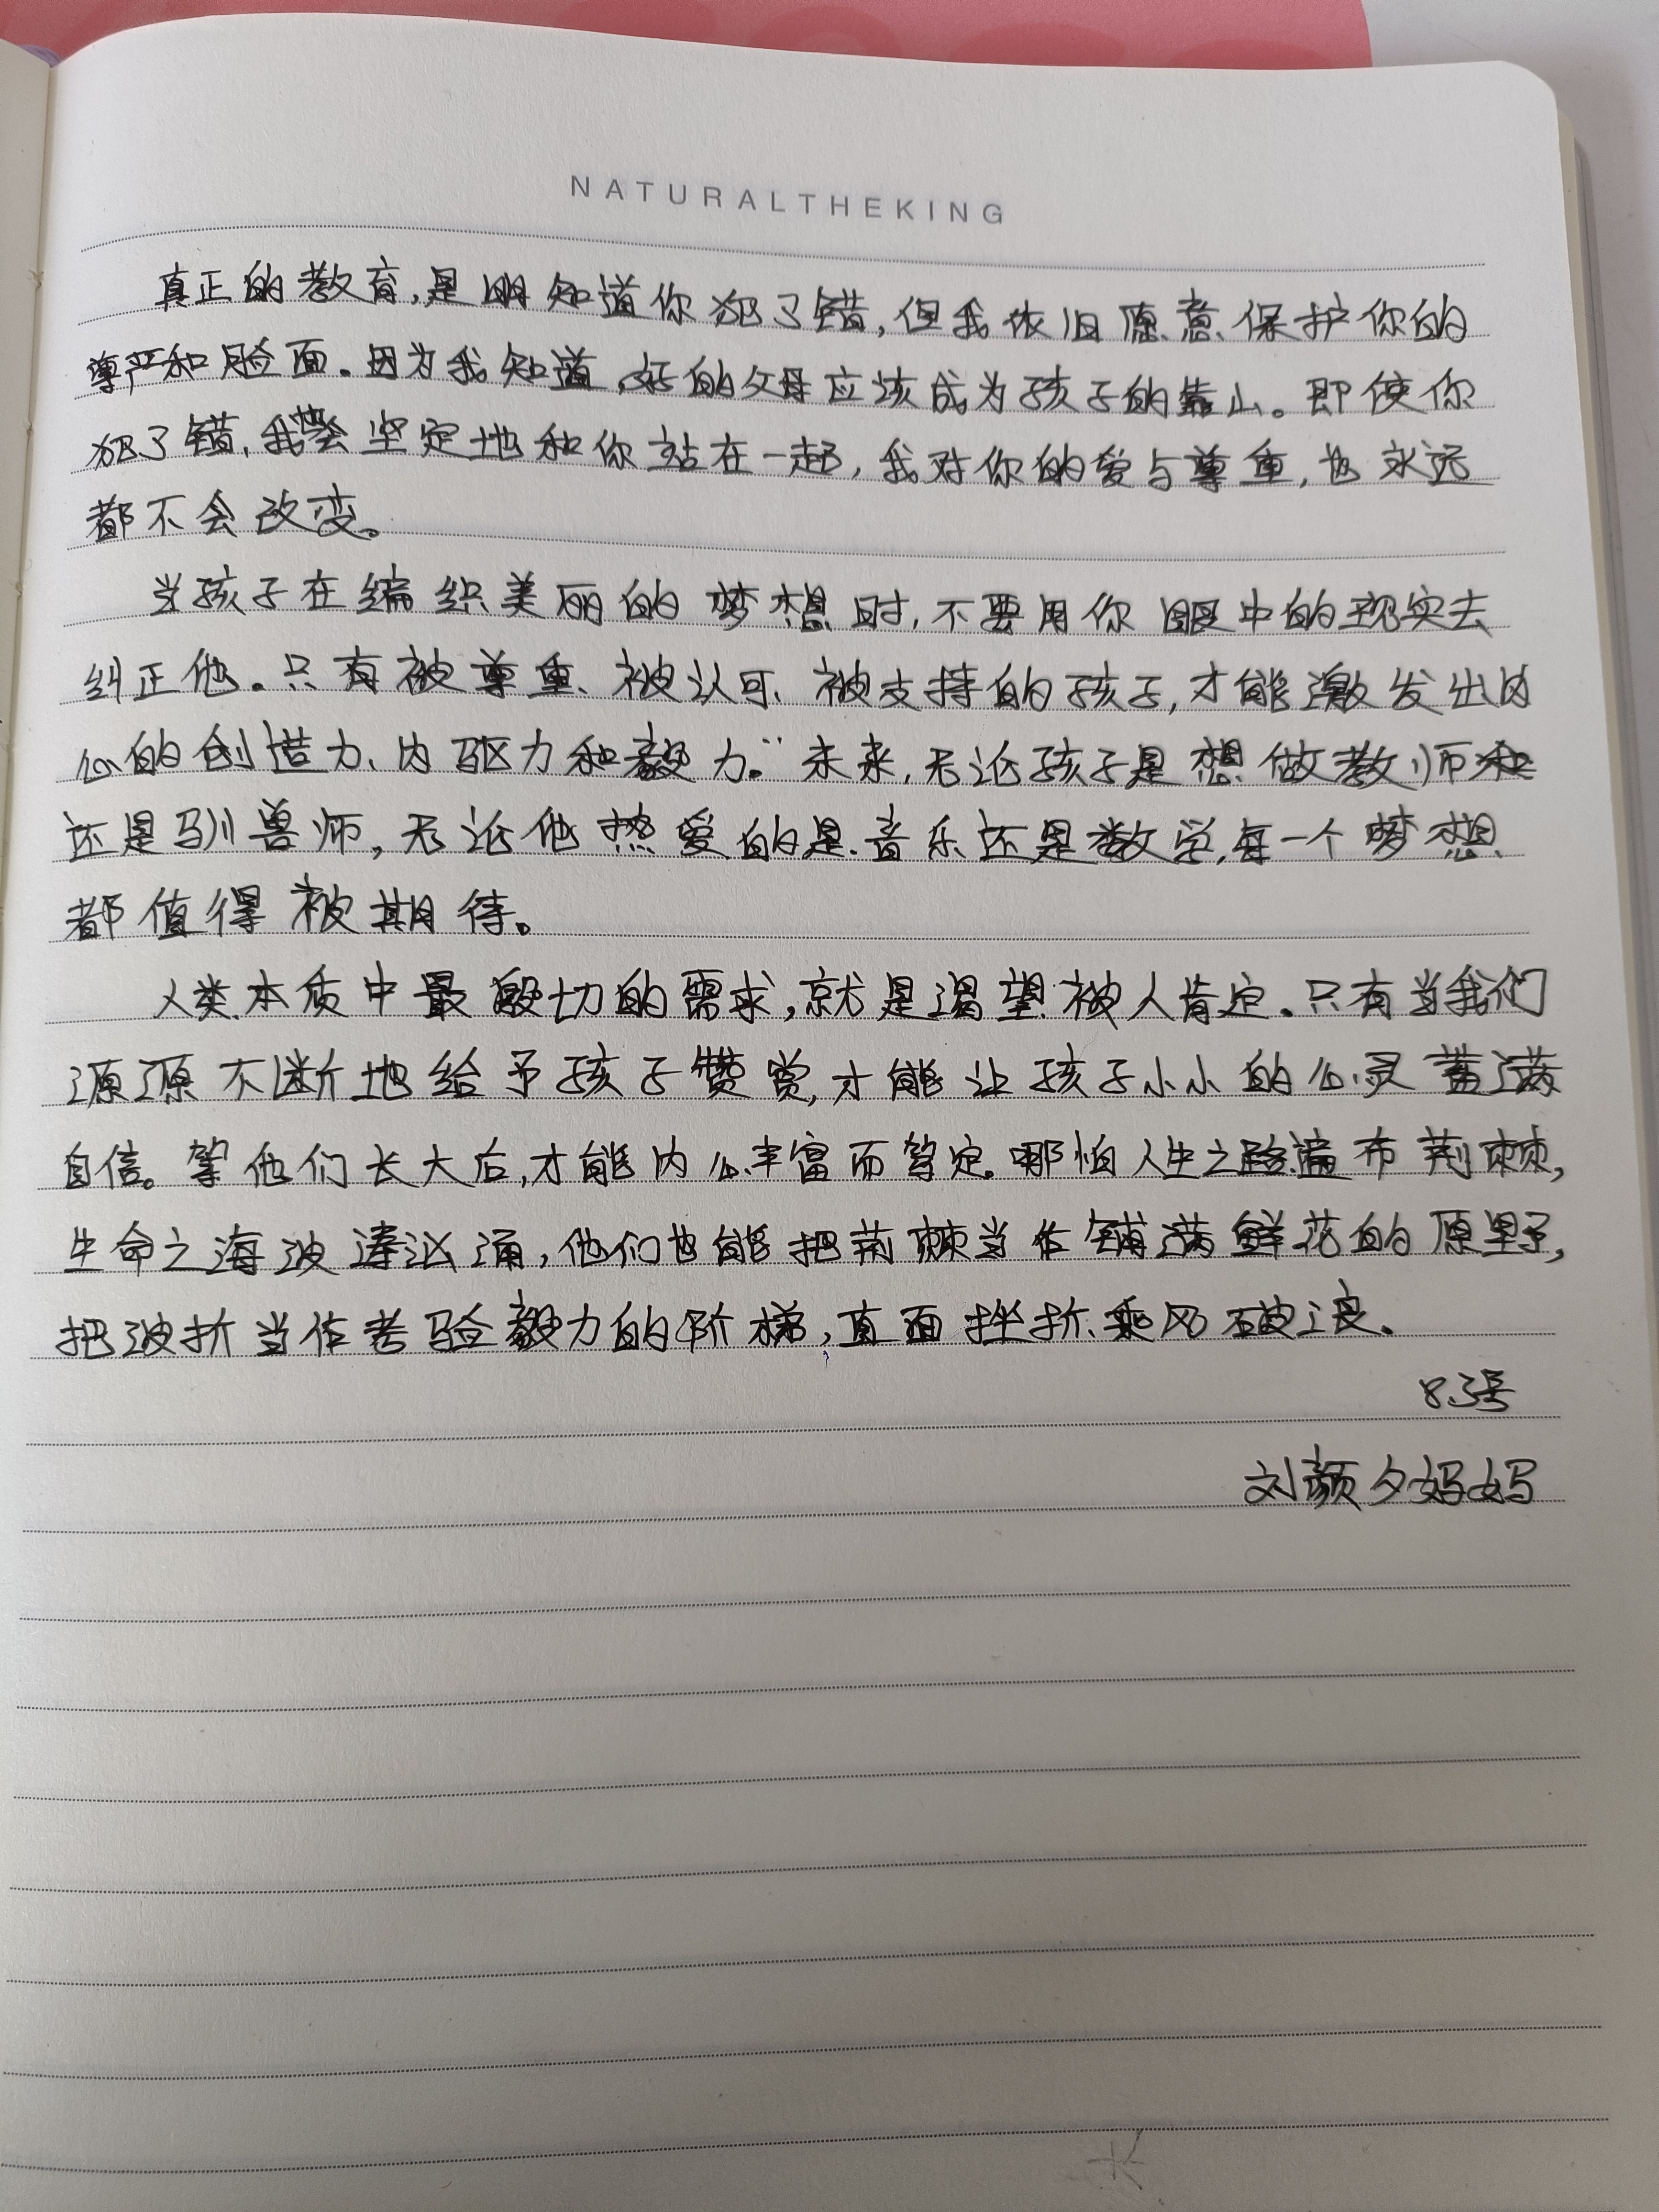 NATURALTHEKING
真正的教育,是明知道你犯了错,但我依旧愿意保护你的
尊严和脸面。因为我知道,好的父母应该成为孩子的靠山。即使你
犯了错,我会坚定地和你站在一起,我对你的爱与尊重,也永远
都不会改变。
当孩子在编织美丽的梦想时,不要用你眼中的现实去
纠正他。只有被尊重、被认可、被支持的孩子,才能激发出内
心的创造力、内驱力和毅力。”未来,无论孩子是想做教师
还是驯兽师,无论他热爱的是音乐还是数学,每一个梦想
都值得被期待。
人类本质中最殷切的需求,就是渴望被人肯定。只有当我们
源源不断地给予孩子赞赏,才能让孩子小小的心灵蓄满
自信。等他们长大后,才能内心丰富而笃定。哪怕人生之路遍布荆棘,
生命之海波涛汹涌,他们也能把荆棘当作铺满鲜花的原野,
把波折当作考验毅力的阶梯,直面挫折、乘风破浪。
8.3号
刘颜夕妈妈